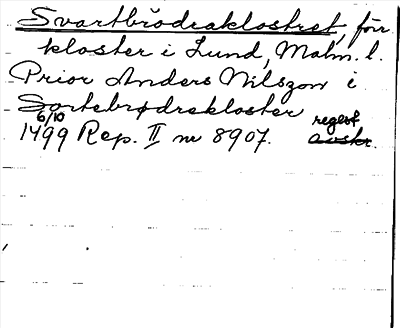 Svartbrödraklostret, förr
kloster i Lund, Malm. l.
Prior Anders Nilszon i
Sortebrødrekloster
6/10 1499 Rep. II nr 8907. regest avskr.